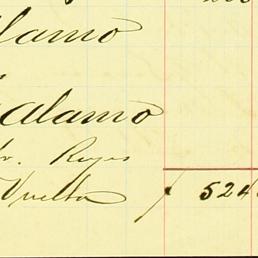 Alamo
Alamo
Reyes
Vuelta 524